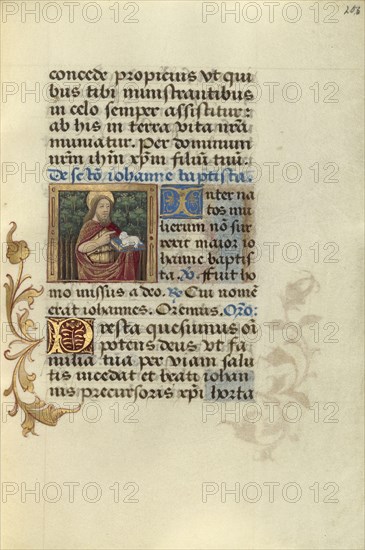 206
concede propicius vt qui
bus tibi ministrantibus
in celo semper assistitur:
ab his in terra vita nr̄a
muniatur. Per dominum
nr̄m ih̄m xp̄m filiū tuū.
De sc̄tō iohanne baptista.
Inter na
tos mu
lierum nō sur
rexit maior io
hanne baptis
ta. V̄. ffuit ho
mo missus a deo. R̄. Cui nomē
erat iohannes. Oremus. Orō:
Presta quesumus oī
potens deus vt fa
milia tua per viam salu
tis incedat et beati iohan
nis precursoris xp̄i horta